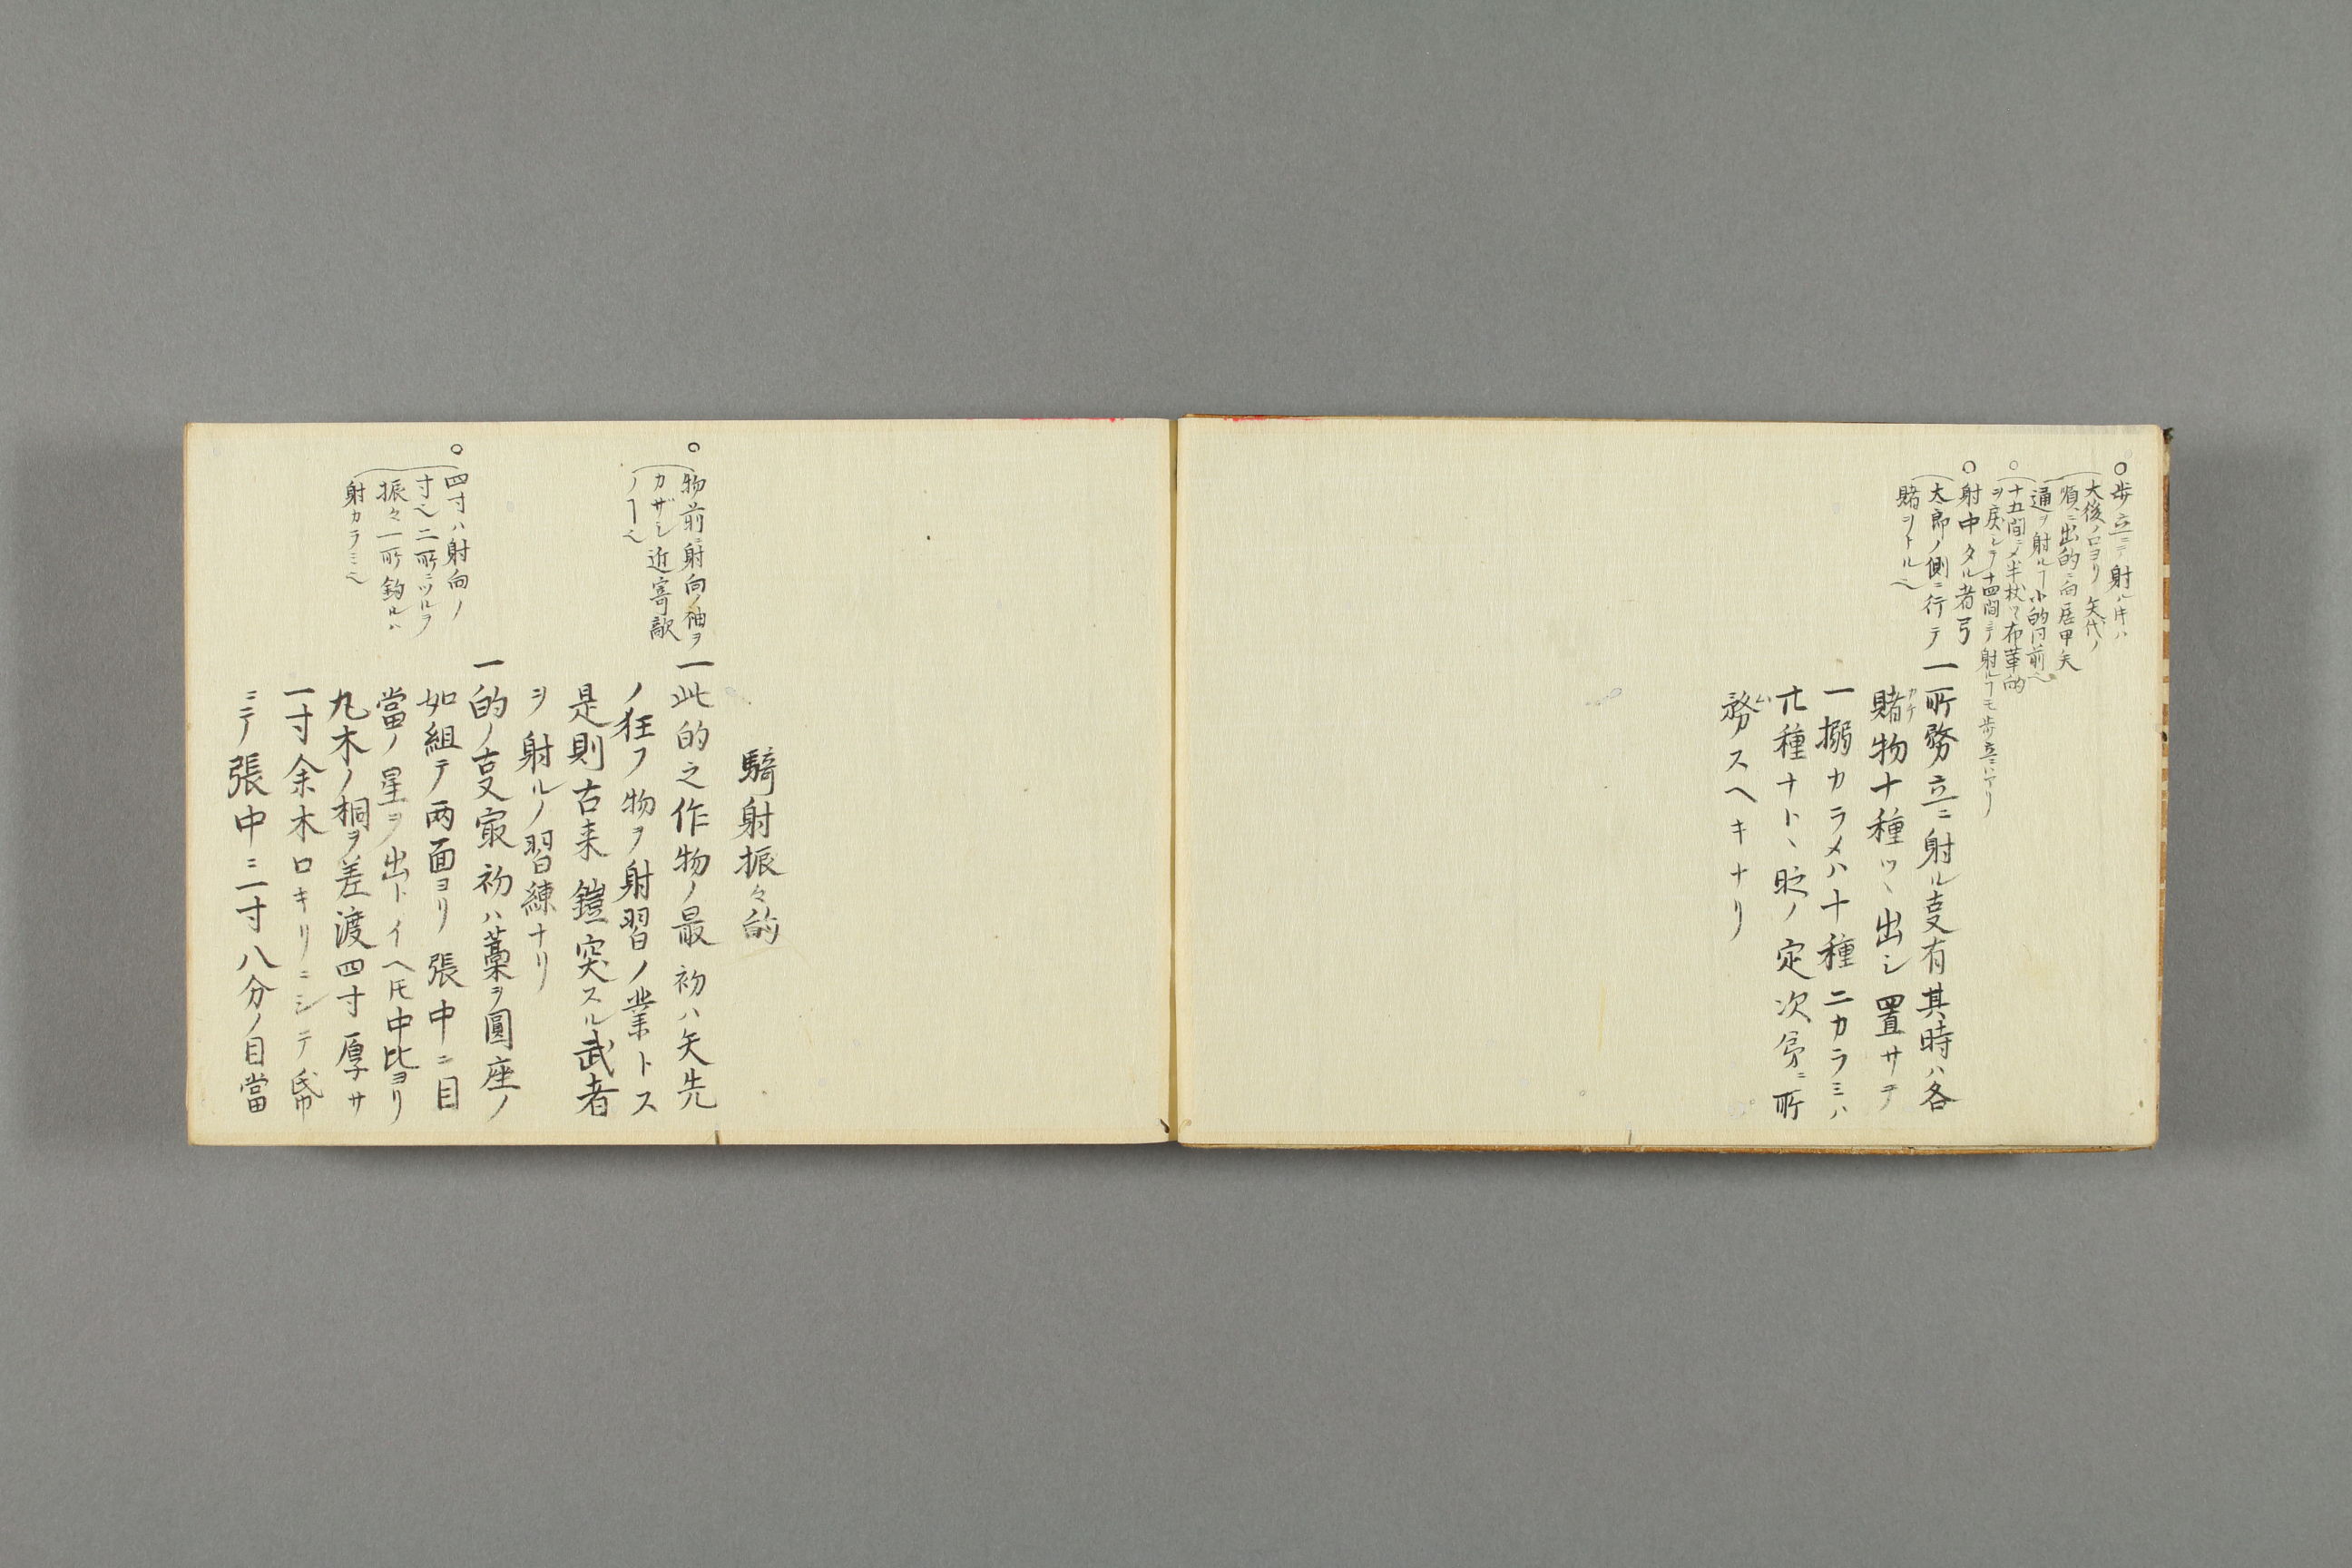 ○歩立ニテ射ル片ハ
大後ノ口ヨリ矢代ノ
順ニ出的ニ向居甲矢
通ヲ射ルヿ小的同前也
○十五間ニ〆半杖ツヽ布革的
ヲ戻シテ十四間ニテ射ルヿモ歩立ニハアリ
○射中タル者弓
太郎ノ側ニ行テ
賭ヲトル也
一所務立ニ射ル㕝有其時ハ各
賭物十種ツヽ出シ置サテ
カケ
一搦カラメハ十種二カラミハ
廿種ナトヽ貶ノ定次第ニ所
務スヘキナリ
ム
騎射振々的
○物前ニ射向ノ袖ヲ
カザシ近寄敵
ノヿ也
一此的之作物ノ最初ハ矢先
ノ狂フ物ヲ射習ノ業トス
是則古来鎧突スル武者
ヲ射ルノ習練ナリ
○四寸ハ射向ノ
寸也二所ニツルヲ
振々一所釣ルハ
射カラミ也
一的ノ㕝㝡初ハ藁ヲ圓座ノ
如組テ両面ヨリ張中ニ目
當ノ星ヲ出トイヘ𪜈中比ヨリ
丸木ノ桐ヲ差渡四寸厚サ
一寸余木口キリニシテ帋
ニテ張中ニ一寸八分ノ目當